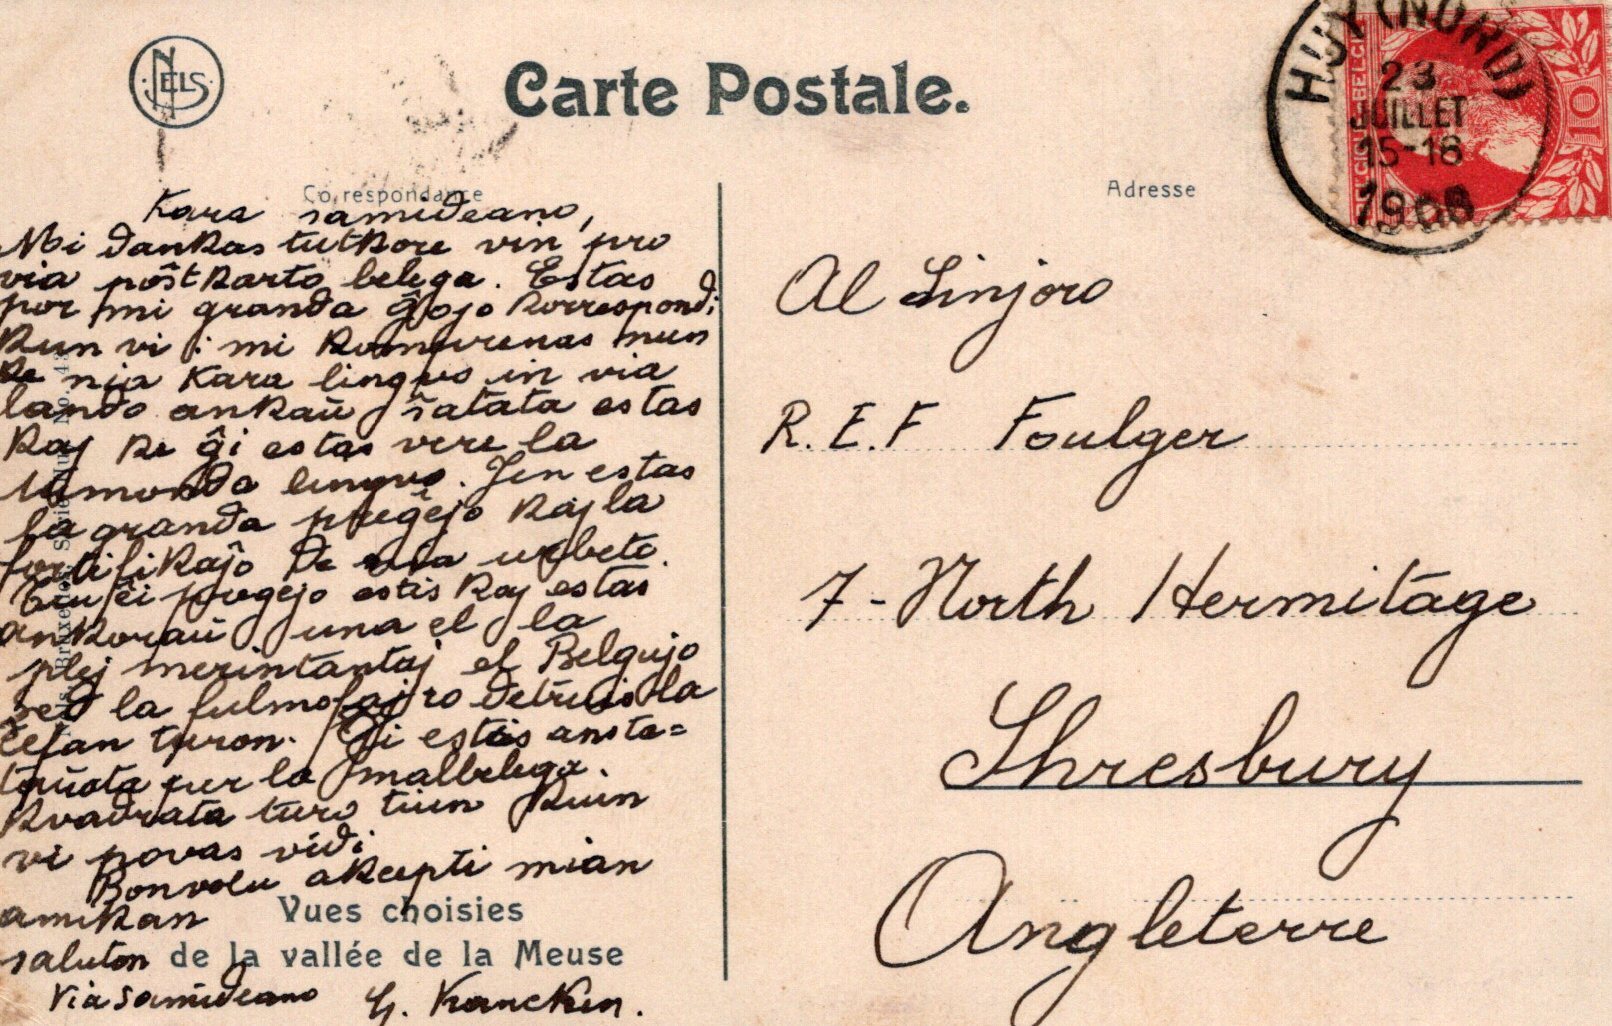 NELS
Carte Postale.
HUY (NORD)
23
JUILLET
15-16
1908
10
Correspondance
Adresse
Kara samideano,
Mi dankas tutkore vin pro
via poŝtkarto belega. Estas
por mi granda ĝojo korrespondi
kun vi; mi komprenas nun
ke nia kara lingvo in via
lando ankaŭ ŝatata estas
kaj ke ĝi estas vere la
tutmonda lingvo. Jen estas
la granda preĝejo kaj la
fortifikaĵo de nia urbeto.
Tiu ĉi preĝejo estis kaj estas
ankoraŭ unu el la
plej merintantaj el Belgujo
sed la fulmofajro detruis la
ĉefan turon. Ĝi estis ansta=
taŭata per la malbelega
kvadrata turo tiun kiun
vi povas vidi
Bonvolu akcepti mian
amikan
saluton
Via samideano
Vues choisies
de la vallée de la Meuse
Al Sinjoro
R.E.F Foulger
7 - North Hermitage
Shresbury
Angleterre